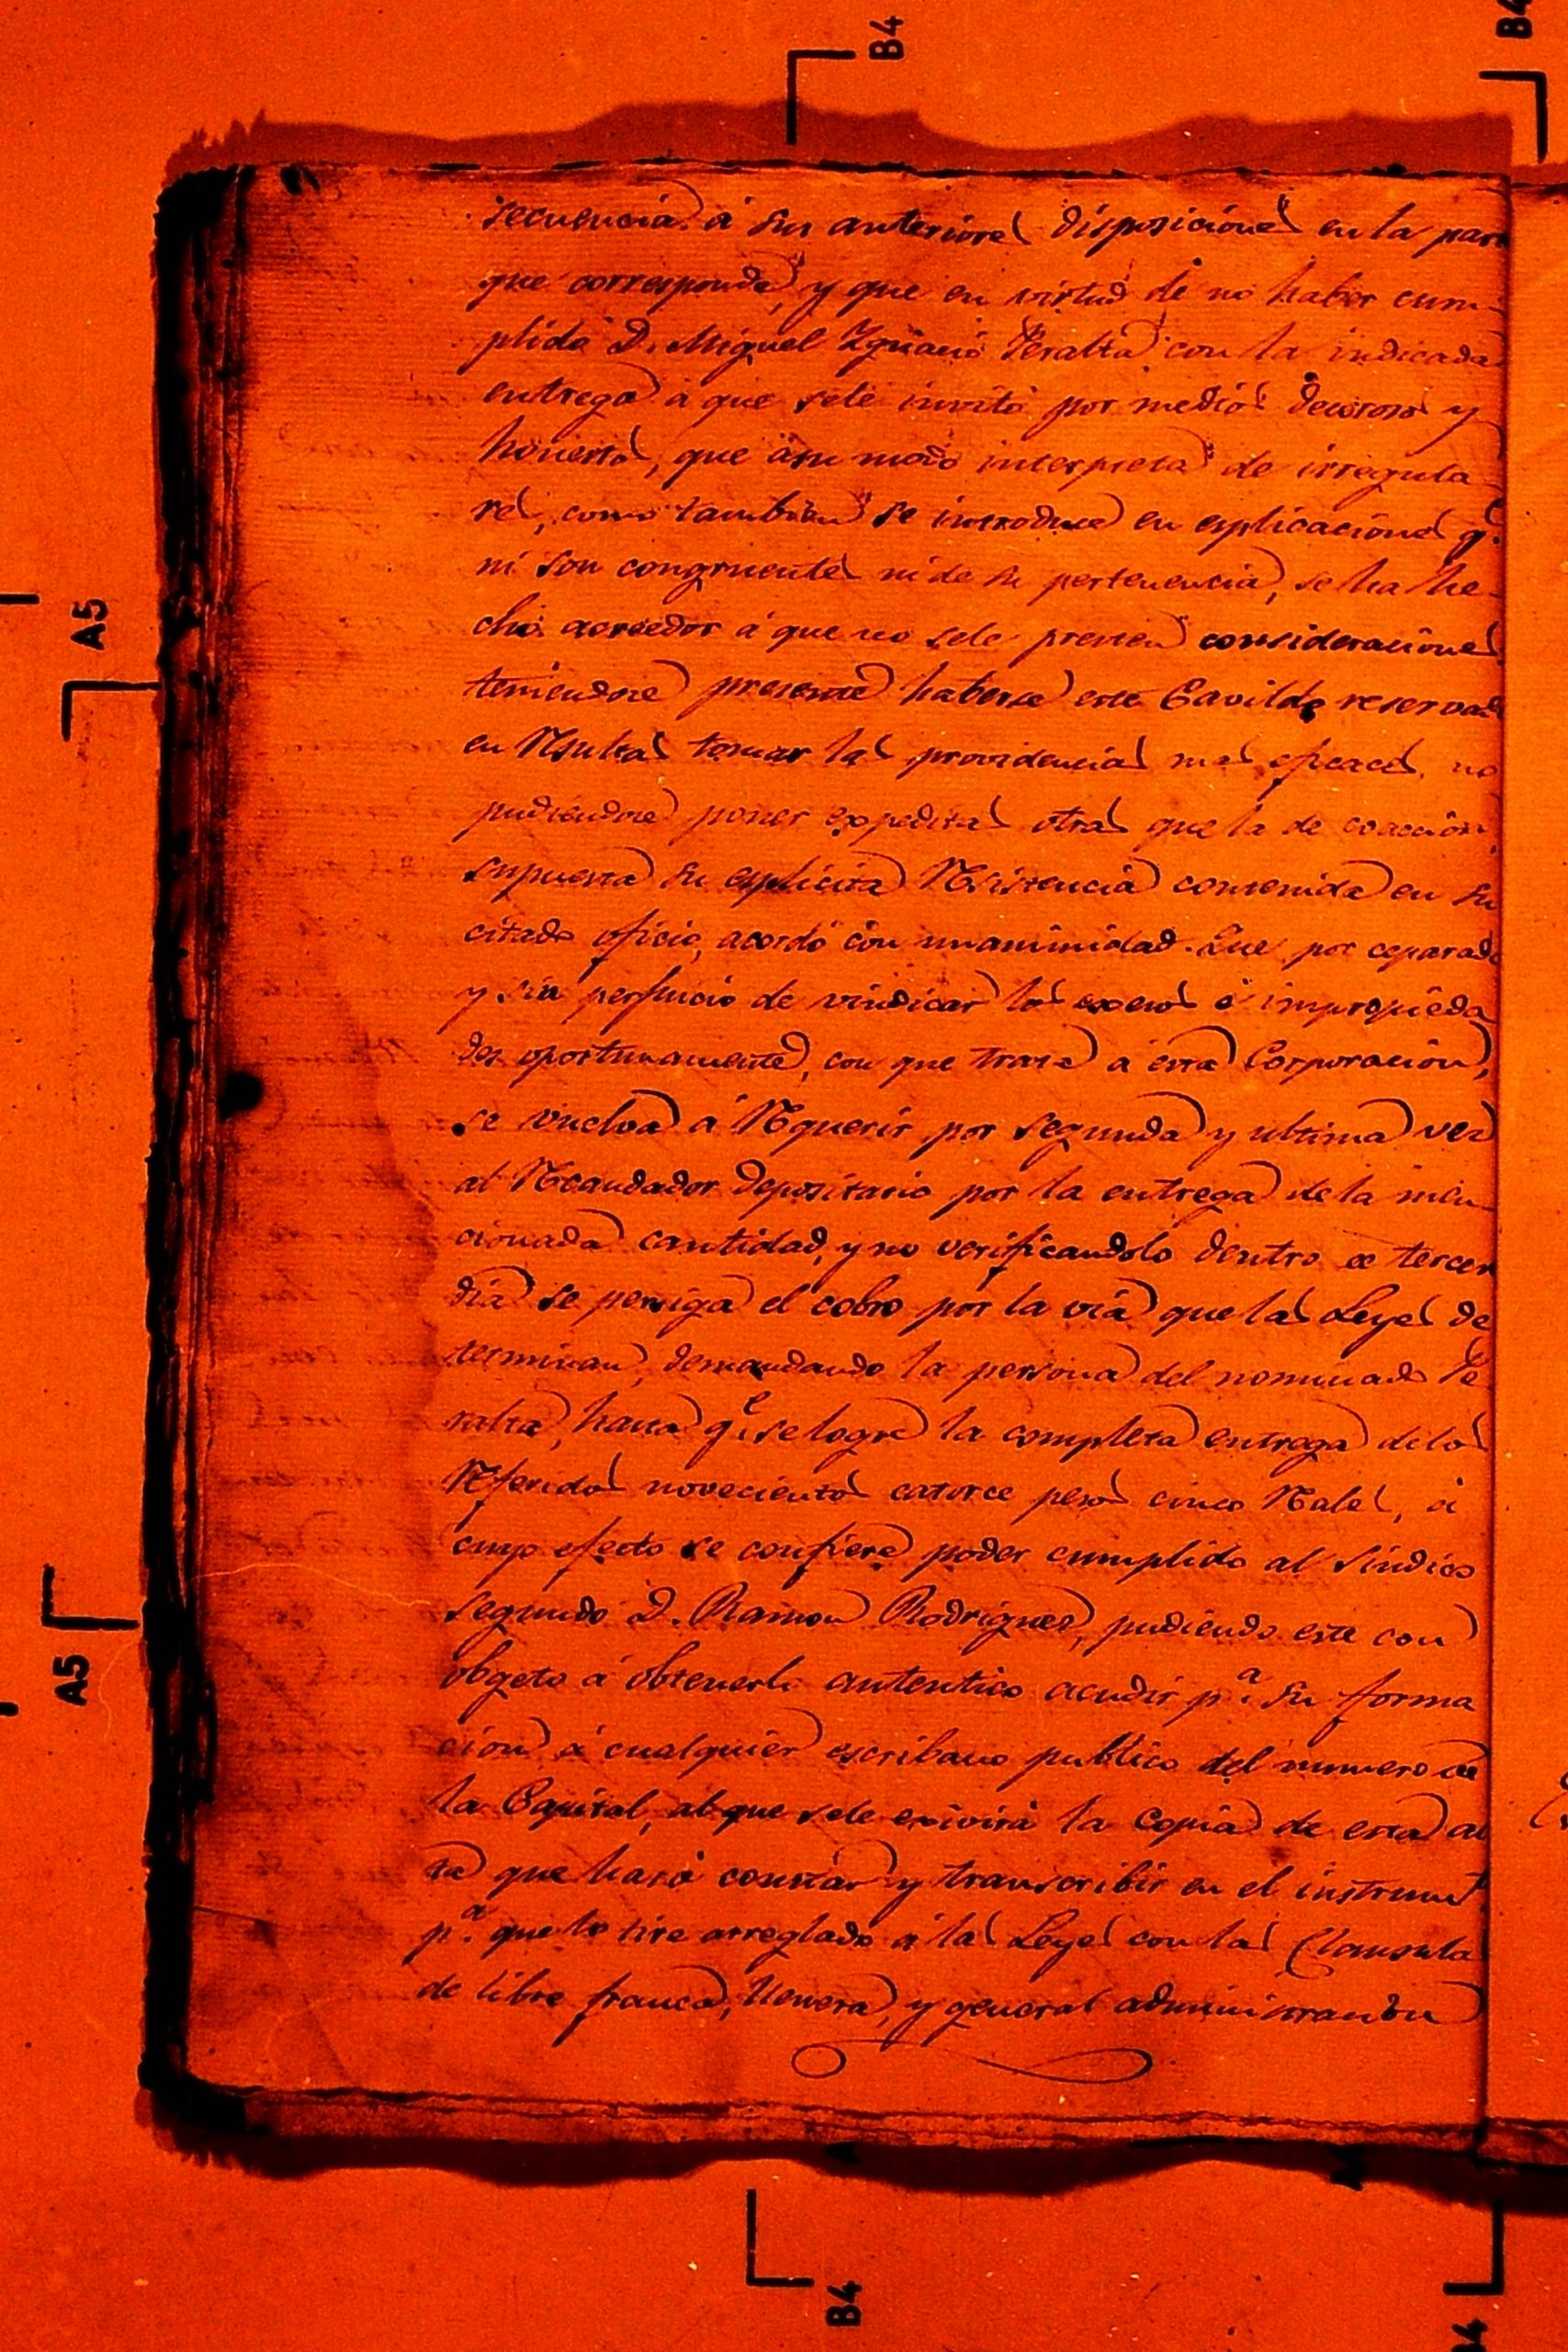 B4
B4
secuencia á sus anteriores disposiciones en la par
que corresponda, y que en virtud de no haber cum-
plido D. Miguel Ygnacio Peralta con la indicada
entrega á que sele invitó por medios decorosos y
honestos, que ásu modo interpreta de irregula
res, como tambien se introduce en esplicaciones q.e
ni son congruentes ni de su pertenencia, se ha he-
cho acreedor á que no sele presten consideraciones
teniendose presente haberse este Cavildo reservad
en Resultas tomar las providencias mas eficaces, no
pudiendose poner expeditas otras que la de coaccion
supuesta su esplicita Resistencia contenida en su
citado oficio, acordó con unanimidad. Que por ceparado
y sin perjuicio de vindicar los exesos é impropieda
des oportunamente, con que trata á esta Corporacion,
se vuelva á Requerir por segunda y ultima vez
al Recaudador depositario por la entrega de la men
cionada cantidad, y no verificandolo dentro de tercer
dia se persiga el cobro por la via que las Leyes de
terminan, demandando la persona del nominado Pe
ralta, hasta q.e se logre la completa entrega delos
Referidos novecientos catorce pesos cinco Reales, á
cuyo efecto se confiere poder cumplido al Sindico
segundo D. Ramon Rodriguez, pudiendo este con
obgeto á obtenerlo autentico acudir p.a su forma
cion á cualquier escribano publico del numero de
la Capital, al que sele exivirá la copia de esta ac
ta que hará constar y transcribir en el instrumt
p.a que lo tire arreglado á las Leyes con las Clausula
de libre franca, y general administracion
A5
A5
B4